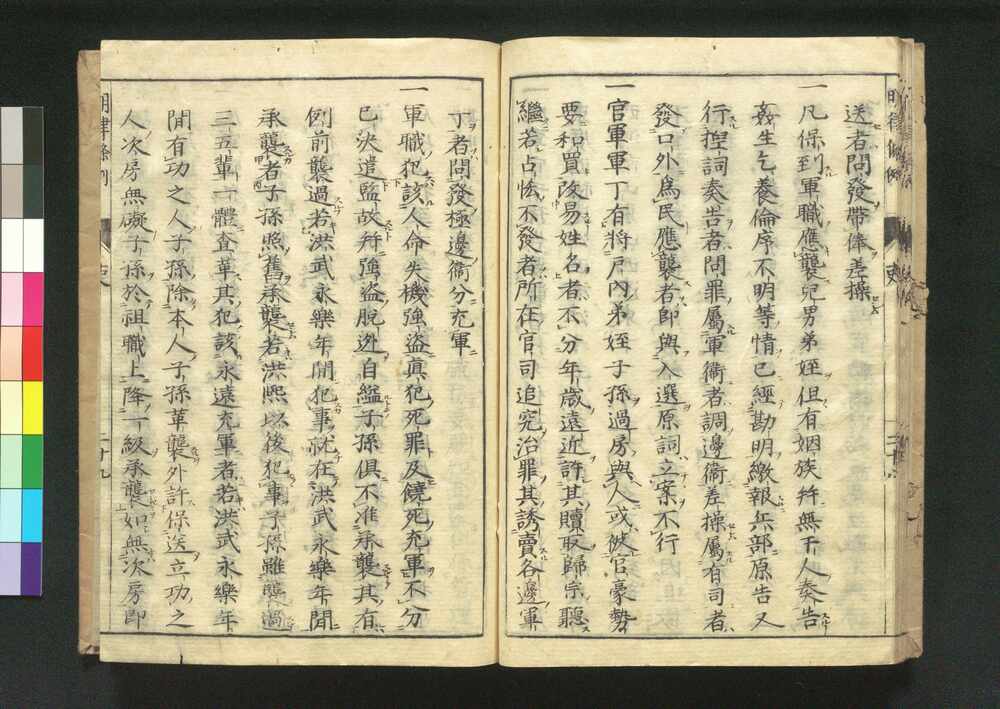 送者問發帶俸差操
一凡保到軍職應襲兒男弟姪但有姻族并無干人奏告
姦生乞養倫序不明等情已經勘明繳報兵部原告又
行捏詞奏告者問罪屬軍衛者調邊衛差操屬有司者
發口外為民應襲者即與入選原詞立案不行
一官軍軍丁有將戶內弟姪子孫過房與人或被官豪勢
要和買改易姓名者不分年歲遠近許其贖取歸宗聽
繼若占恡不發者所在官司追究治罪其誘賣各邊軍
丁者問發極邊衛分充軍
一軍職犯該人命失機強盜眞犯死罪及饒死充軍不分
已決遣監故并強盜脫逃自縊子孫俱不准承襲其有
例前襲過若洪武永樂年間犯事就在洪武永樂年間
承襲者子孫照舊承襲若洪熙以後犯事子孫雖襲過
三五輩一體查革其犯該永遠充軍者若洪武永樂年
間有功之人子孫除本人子孫革襲外許保送立功之
人次房無礙子孫於祖職上降一級承襲如無次房即
明律條例
二十九